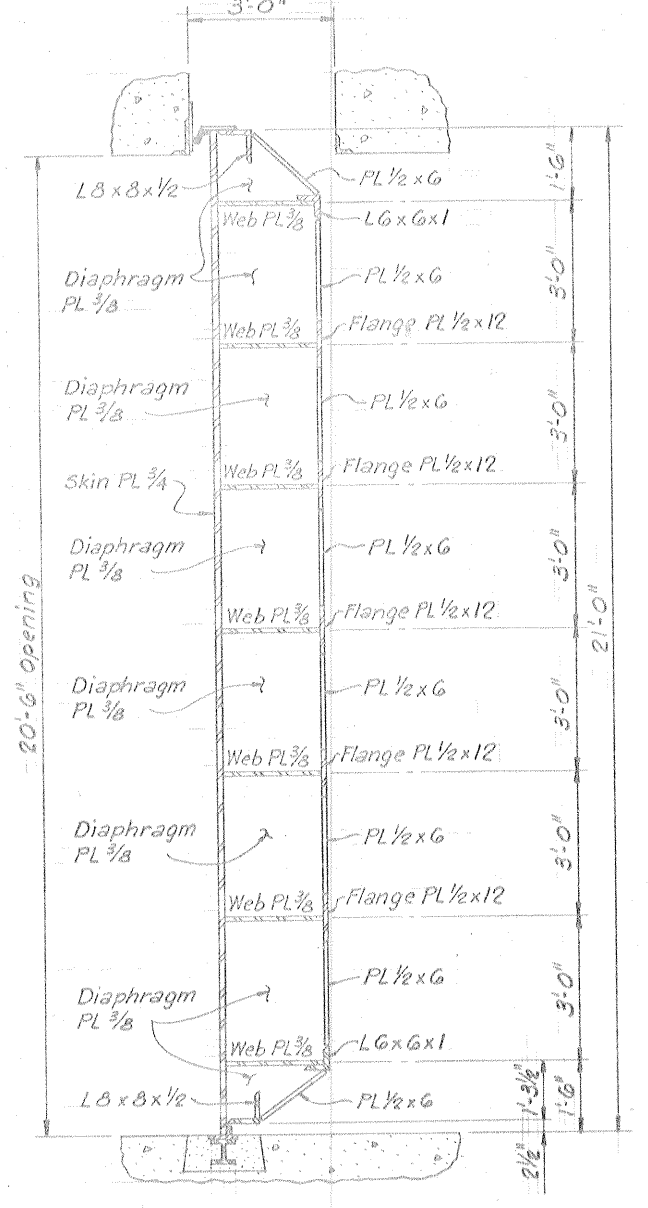 3'-0"
L8 x 8 x 1/2
PL 1/2 x 6
1'-6"
Web PL 3/8
L6 x 6 x 1
Diaphragm
PL 3/8
PL 1/2 x 6
3'-0"
Web PL 3/8
Flange PL 1/2 x 12
Diaphragm
PL 3/8
PL 1/2 x 6
3'-0"
Web PL 3/8
Flange PL 1/2 x 12
Skin PL 3/4
Diaphragm
PL 3/8
PL 1/2 x 6
3'-0"
20'-6" opening
21'-0"
Web PL 3/8
Flange PL 1/2 x 12
Diaphragm
PL 3/8
PL 1/2 x 6
3'-0"
Web PL 3/8
Flange PL 1/2 x 12
Diaphragm
PL 3/8
PL 1/2 x 6
3'-0"
Web PL 3/8
Flange PL 1/2 x 12
Diaphragm
PL 3/8
PL 1/2 x 6
3'-0"
Web PL 3/8
L6 x 6 x 1
L8 x 8 x 1/2
PL 1/2 x 6
1'-3 1/2"
1'-6"
2 1/2"